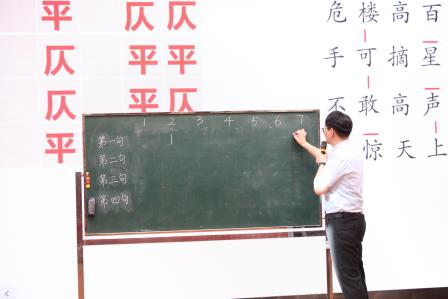 平 仄 平
仄 平 平
仄 平 仄
平
危楼高百
手可摘星
不敢高声
惊天上
1 2 3 4 5 6 7
第一句 |
第二句
第三句
第四句